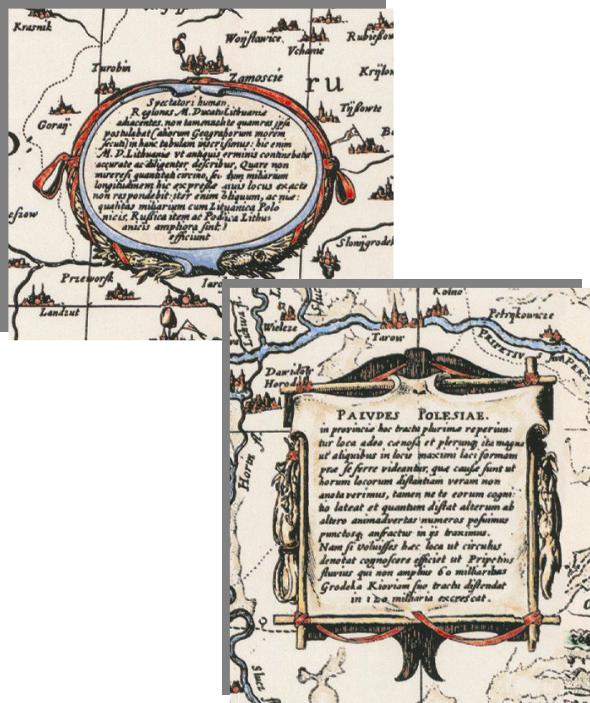 Krasnik
Woyslawice
Vchanie
Rubießow
Turobin
Zamoscie
ru
Goraÿ
Tÿßowte
Spectator: human.
Regiones M. Ducatu Lithuaniæ
adiacentes, non tamen
postulabat (aliorum Geographorum morem
secuti) in hanc tabulam inscripsimus: hic enim
M. D. Lithuaniæ vt antiquis terminis continebatur
accurate ac diligenter describitur. Quare non
quantitas circino, dum miliarium
longitudinem hic expressæ locus exacte
non respondebit: iter enim obliquum, ac
qualitas miliarium cum Lituanica Polo
nicis, Russica item ac Podlica Lithu
anicis ampliora sint.)
efficiunt
Przeworsk
Landzut
Slonÿgrodek
Kolno
Wielcze
Tarow
Petrykowcze
PRIPETIVS
Dawidow
Horod
Horin fl.
PALVDES POLESIAE.
in provincia hoc tractu plurimæ reperiun:
tur loca adeo cænosa et plerunq; ita magna
ut aliquibus in locis maximi laci formam
præ se ferre videantur, quæ causæ sunt ut
horum locorum distantiam veram non
annotaverimus, tamen ne te eorum cogni:
tio lateat et quantum distat alterum ab
altero animadvertas numeros posuimus
punctosq; anfractus in ijs traximus.
Nam si voluisses hæc loca ut circulus
denotat cognoscere efficiet ut Pripetius
fluvius qui non amplius 60 milliaribus
Grodeka Kioviam suo tractu distendat
in 120 milliaria excrescat.
Slucz